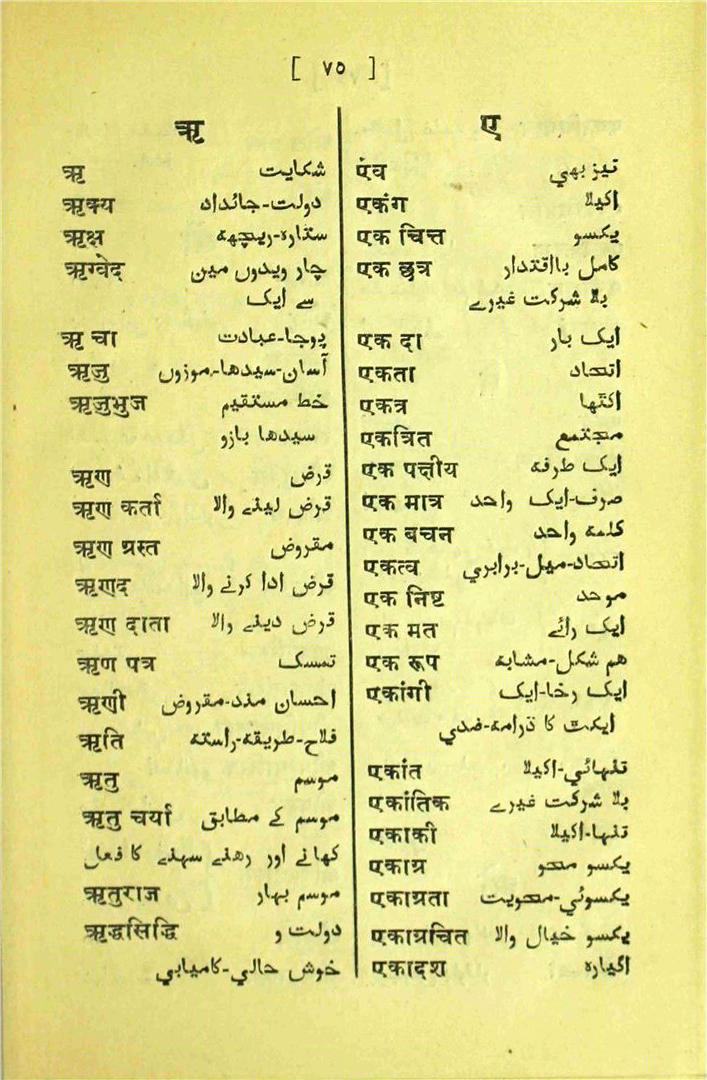 [ ٧٥ ]
ऋ
ऋ شکایت
ऋक्य دولت-جائداد
ऋक्ष ستارہ-ریچھہ
ऋग्वेद چار ویدوں مین
سے ایک
ऋ चा پوجا-عبادت
ऋजु آسان-سیدھا-موزوں
ऋजुभुज خط مستقیم
سیدھا بازو
ऋण قرض
ऋण कर्ता قرض لینے والا
ऋण ग्रस्त مقروض
ऋणद قرض ادا کرنے والا
ऋण दाता قرض دینے والا
ऋण पत्र تمسک
ऋणी احسان مند-مقروض
ऋति فلاح-طریقہ-راستہ
ऋतु موسم
ऋतु चर्या موسم کے مطابق
کھانے اور رھنے سہنے کا فعل
ऋतुराज موسم بہار
ऋद्धसिद्धि دولت و
خوش حالي-کامیابي
ए
एंव نیز بھي
एकंग اکیلا
एक चित्त یکسو
एक छत्र کامل بااقتدار
بلا شرکت غیرے
एक दा ایک بار
एकता اتحاد
एकत्र اکتھا
एकत्रित مجتمع
एक पक्षीय ایک طرفہ
एक मात्र صرف-ایک واحد
एक बचन کلمہ واحد
एकत्व اتحاد-میل-برابري
एक निष्ट موحد
एक मत ایک رائے
एक रूप ھم شکل-مشابہ
एकांगी ایک رخا-ایک
ایکت کا ڈرامہ-ضدي
एकांत تنہائي-اکیلا
एकांतिक بلا شرکت غیرے
एकाकी تنہا-اکیلا
एकाग्र یکسو محو
एकाग्रता یکسوئي-محویت
एकाग्रचित یکسو خیال والا
एकादश اگیارہ